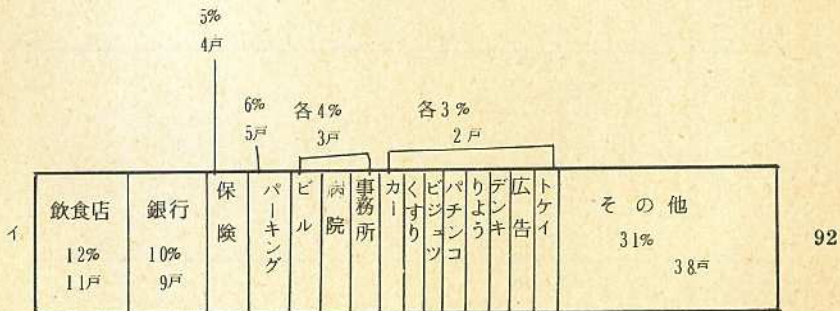 5%
4戸
6%
5戸
各4%
3戸
各3%
2戸
イ
飲食店
12%
11戸
銀行
10%
9戸
保険
パーキング
ビル
病院
事務所
カー
くすり
ビジュツ
パチンコ
りよう
デンキ
広告
トケイ
その他
31%
38戸
92